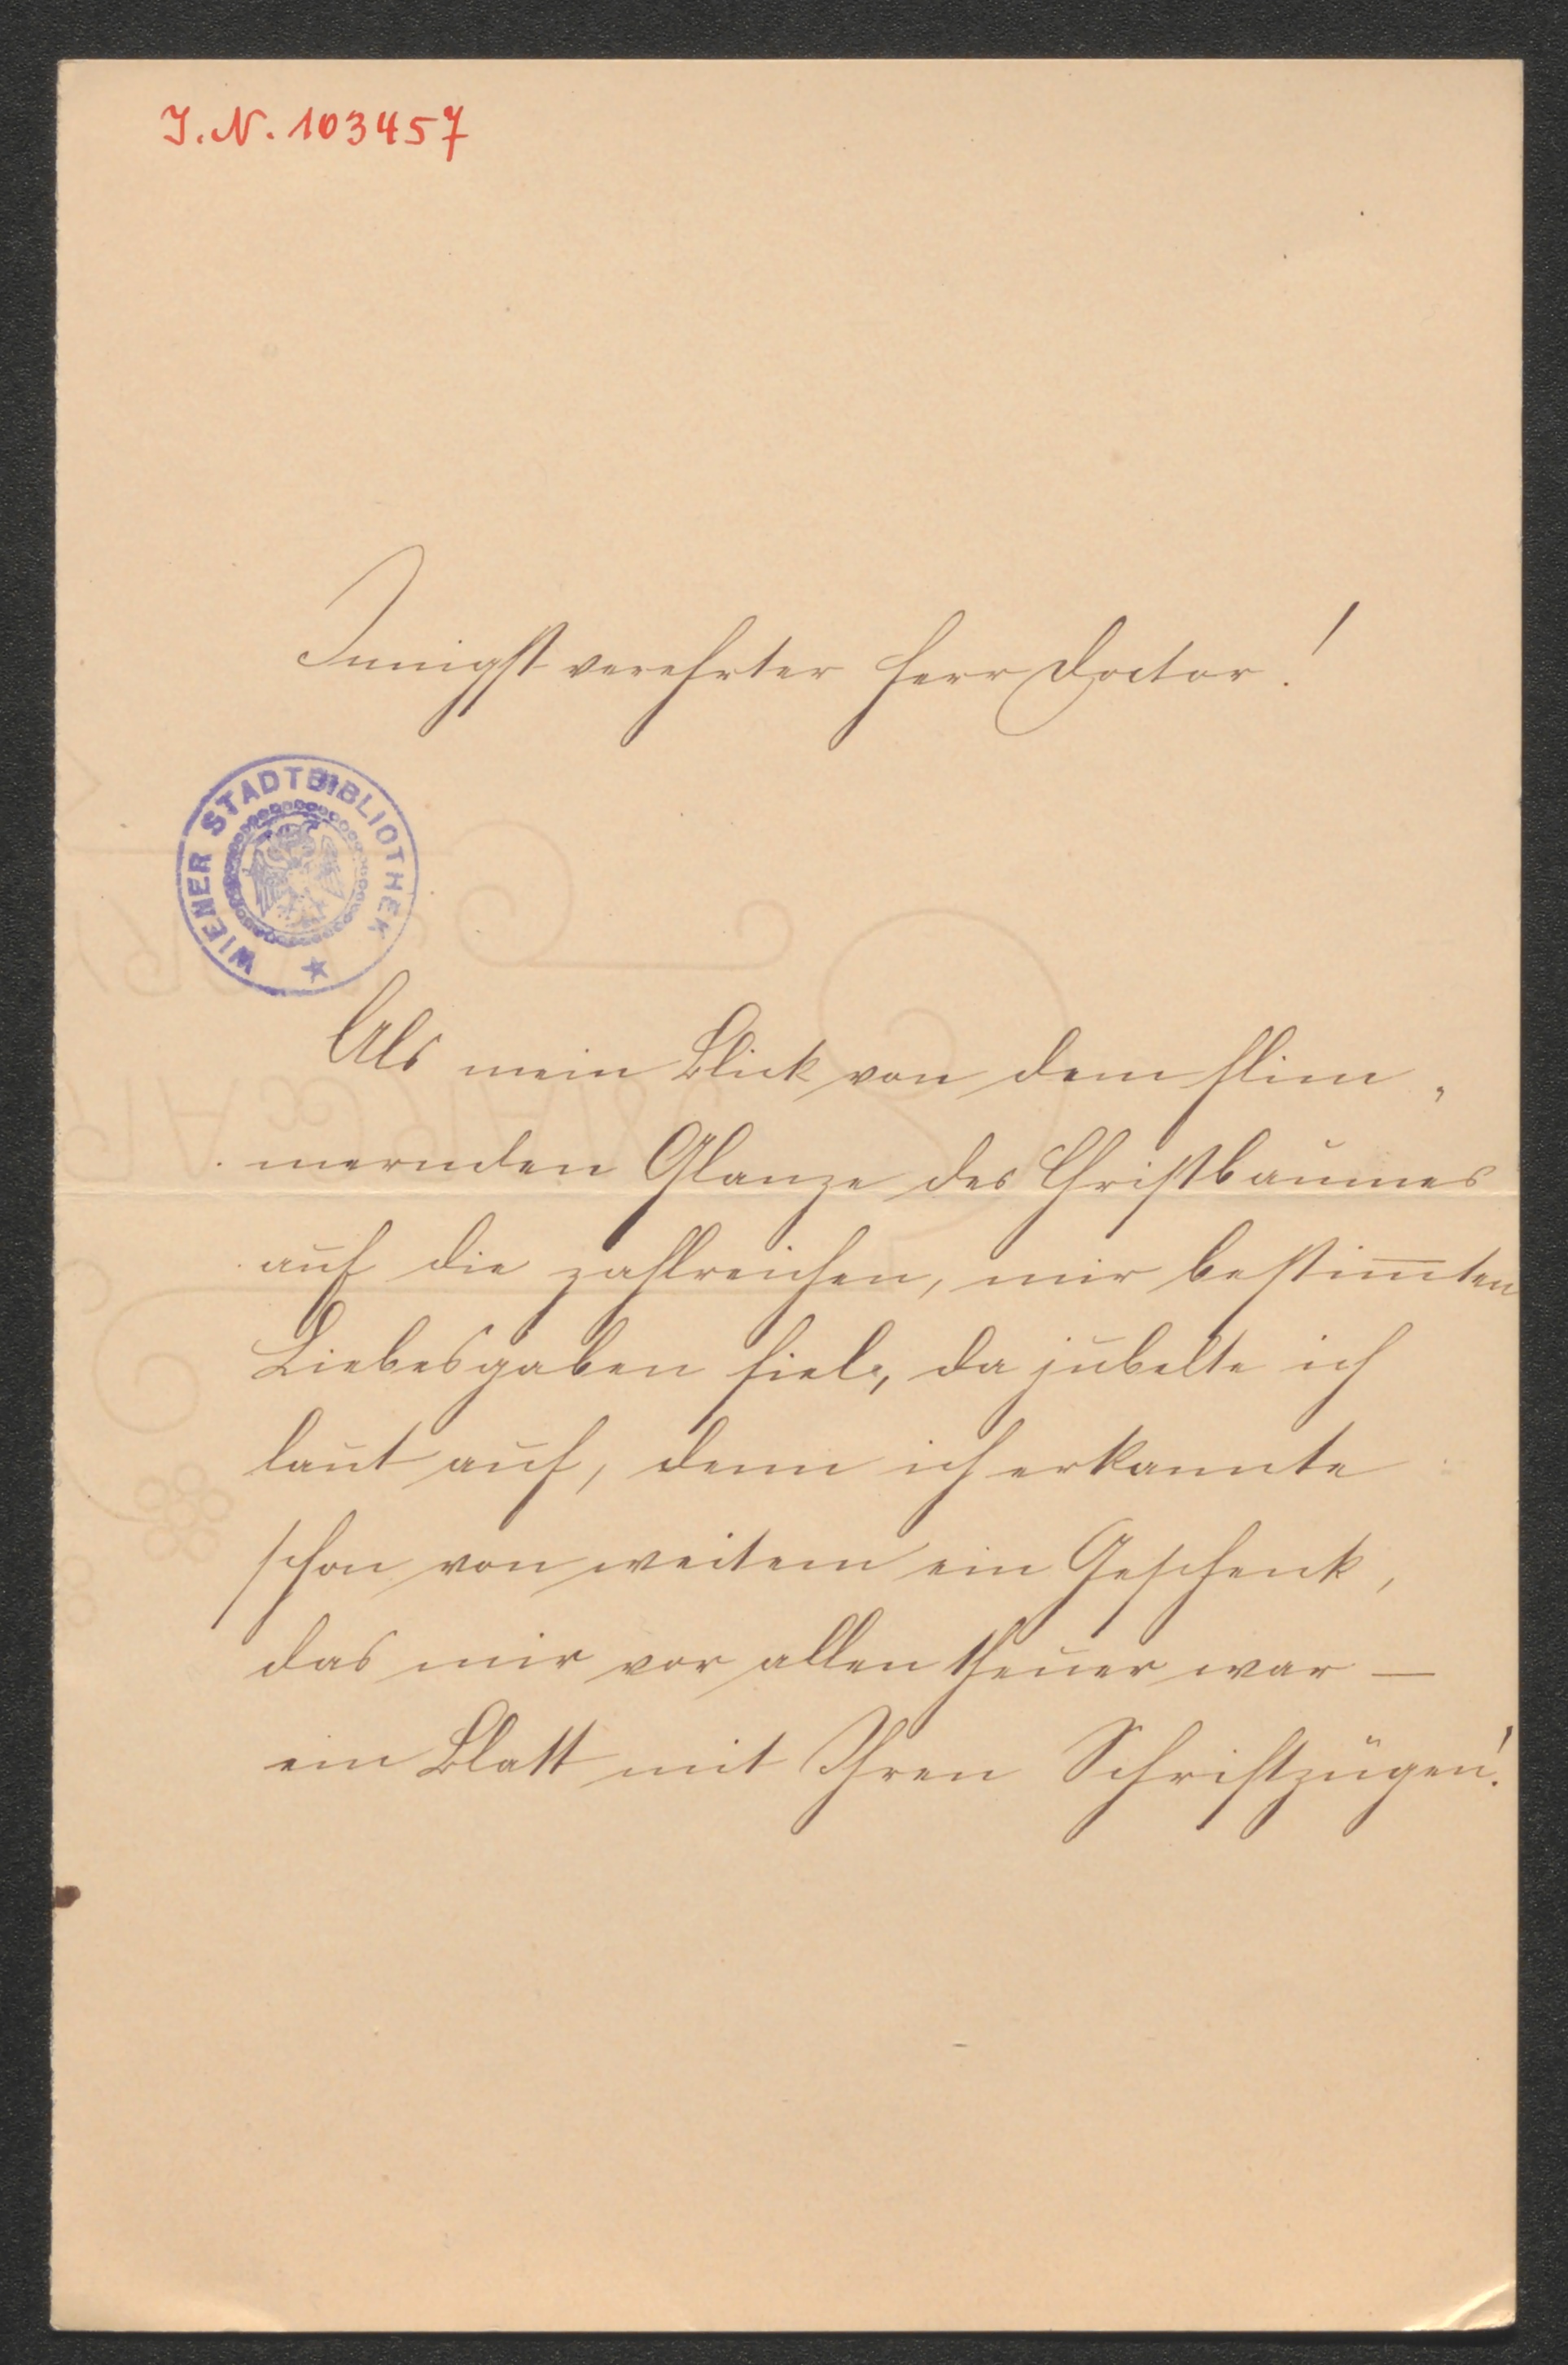 I.N. 103457
Innigst verehrter Herr Doctor!
WIENER STADTBIBLIOTHEK
Als mein Blick von dem flim„
mernden Glanze des Christbaumes
auf die zahlreichen, mir bestim̅ten
Liebesgaben fiel, da jubelte ich
laut auf, denn ich erkannte
schon von weitem ein Geschenk,
das mir vor allen theuer war —
ein Blatt mit Ihren Schriftzügen!